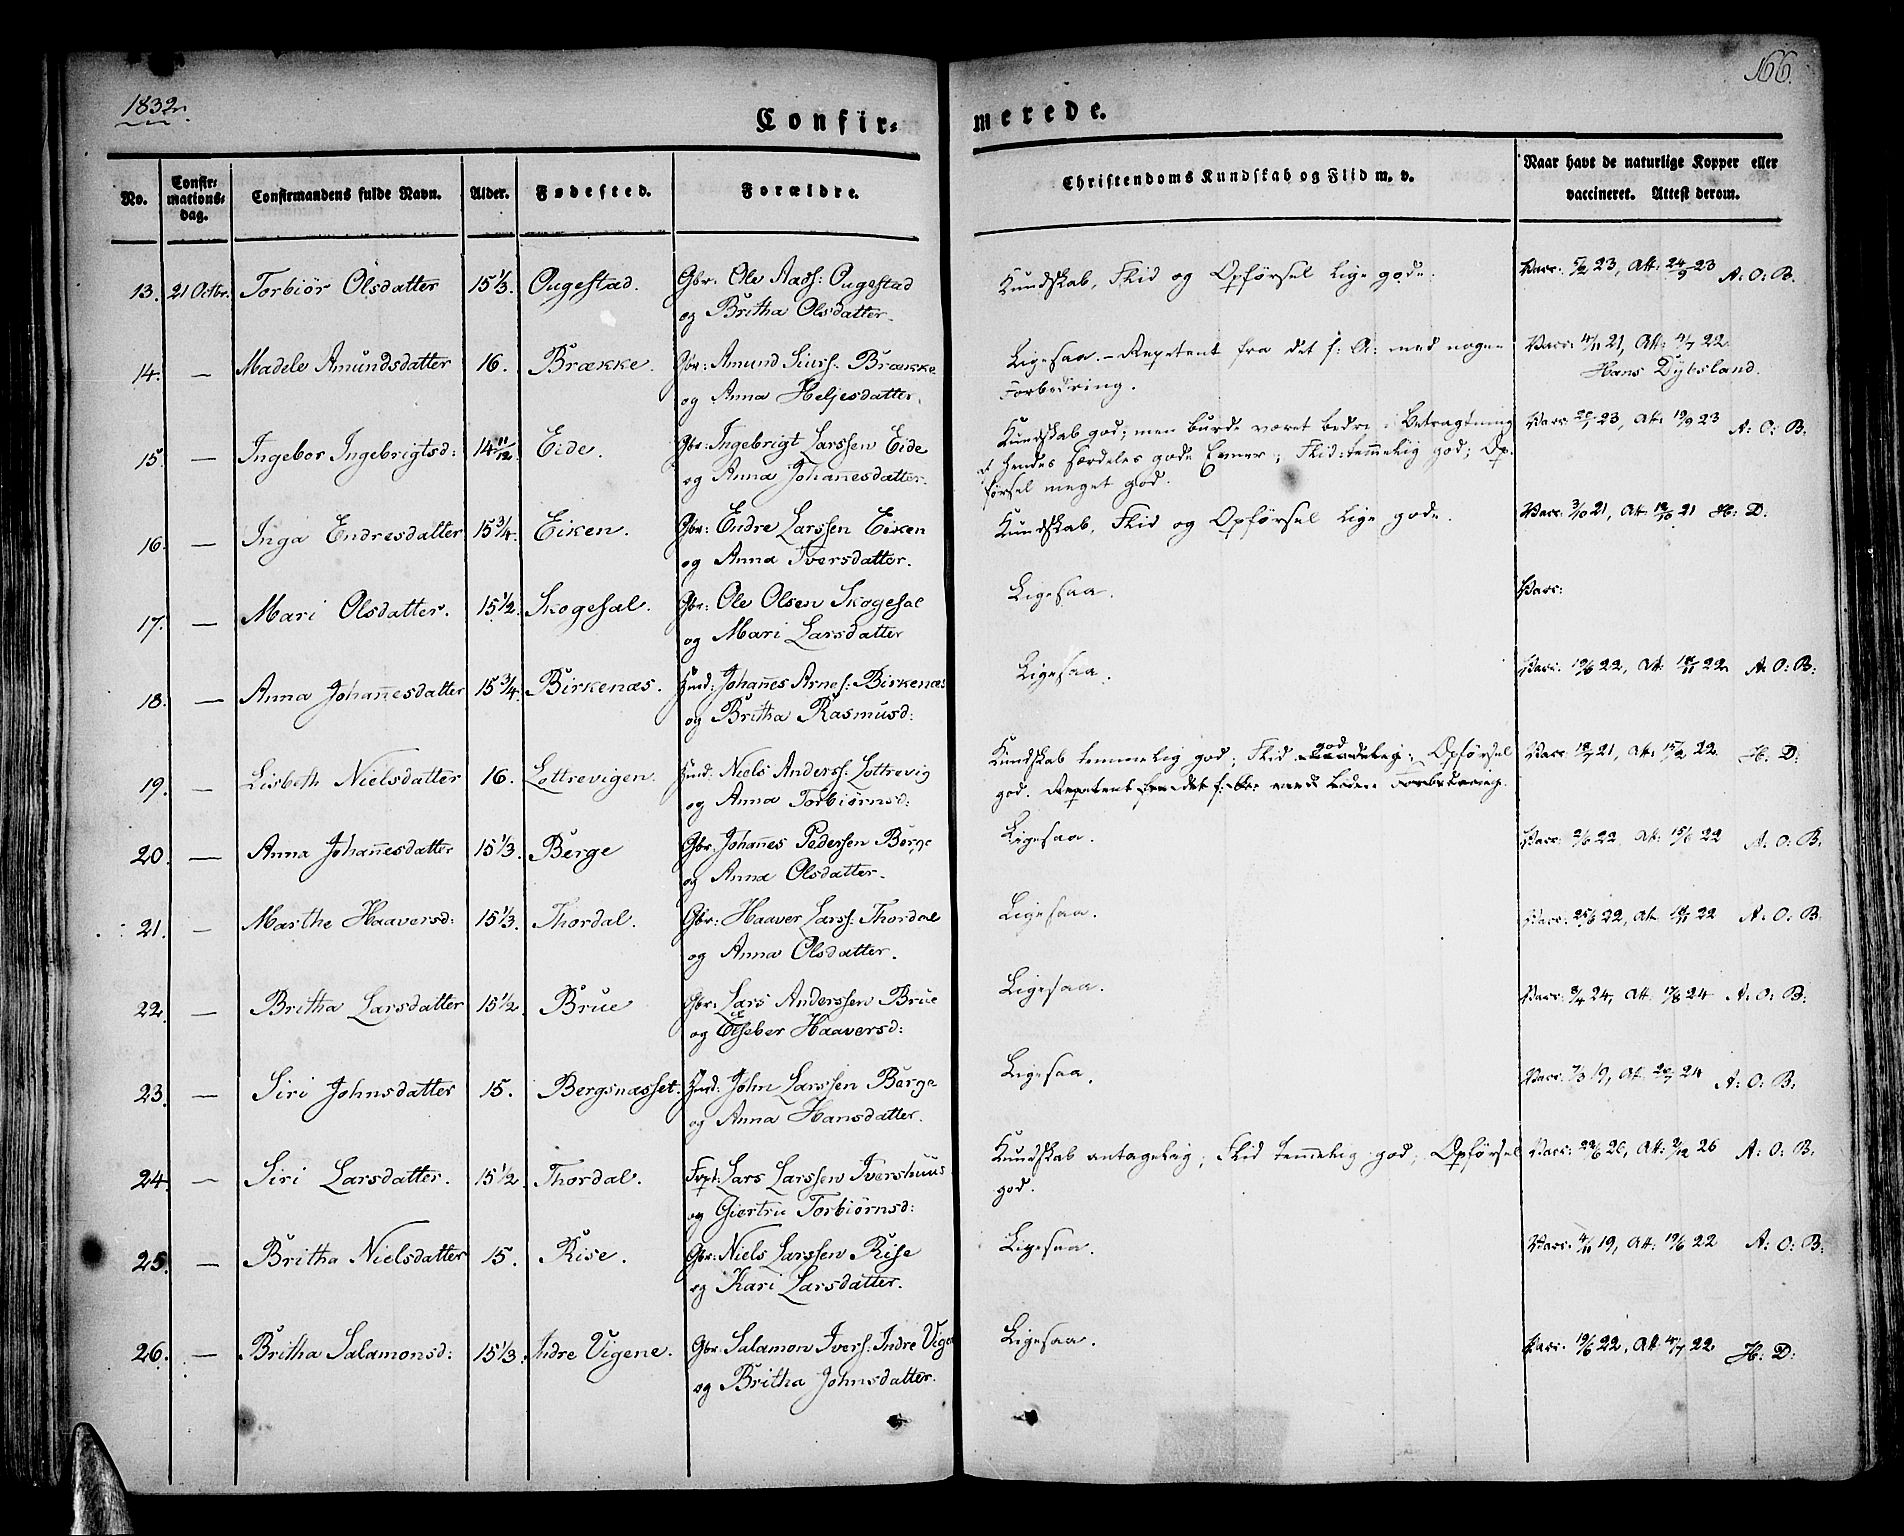 166.
1832.
Confir-
merede.
No.
Confir-
mations-
dag.
Confirmandens fulde Navn.
Alder.
Fødested.
Forældre.
Christendoms Kundskab og Flid m. v.
Naar havt de naturlige Kopper eller
vaccineret. Attest derom.
13. 21 Octbr. Torbiör Olsdatter 15 1/3. Ougestad. Gbr: Ole Aads: Ougestad Kundskab, Flid og Opförsel lige gode. Vacc: 5/2 23, Att: 24/9 23 A: O: B.
og Britha Olsdatter.
14. — Madele Amundsdatter 16. Brække. Gbr: Amund Siurs: Brække Ligesaa. - Repetent fra det f: A: med nogen Vacc: 4/11 21, Att: 4/7 22
og Anna Heljesdatter. Forbedring. Hans Dybsland.
15. — Ingebor Ingebrigtsd: 14 11/12. Eide. Gbr: Ingebrigt Larssen Eide Kundskab god; men burde været bedre i Betragtning Vacc: 20/7 23, Att: 19/9 23 A: O: B.
og Anna Johannesdatter. af hendes særdeles gode Evner; Flid: temmelig god; Op-
försel meget god.
16. — Inga Endresdatter 15 3/4. Eiken. Gbr: Endre Larssen Eiken Kundskab, Flid og Opförsel lige gode. Vacc: 3/10 21, Att: 12/10 21 H: D.
og Anna Iversdatter.
17. — Mari Olsdatter. 15 1/2. Skogesal. Gbr: Ole Olsen Skogesal Ligesaa. Vacc:
og Mari Larsdatter
18. — Anna Johannesdatter 15 3/4. Birkenæs. Huusd: Johannes Arnes: Birkenæs Ligesaa. Vacc: 19/6 22, Att: 18/11 22 A: O: B:
og Britha Rasmusd:
19. — Lisbeth Nielsdatter 16. Lottrevigen. Huusd: Niels Anderss: Lottrevig Kundskab temmelig god; Flid god; Opförsel Vacc: 18/7 21, Att: 15/2 22 H: D:
og Anna Torbiörnsd: god. Repetent fra det f: med liden Forbedring.
20. — Anna Johannesdatter 15 1/3. Berge Gbr: Johannes Pederssen Berge Ligesaa. Vacc: 2/6 22, Att: 15/6 22 A: O: B.
og Anna Olsdatter.
21. — Marthe Haaversd: 15 1/3. Thordal. Gbr: Haaver Larss: Thordal Ligesaa. Vacc: 25/6 22, Att: 18/11 22 A: O: B.
og Anna Olsdatter.
22. — Britha Larsdatter 15 1/2. Brue Gbr: Lars Anderssen Brue Ligesaa. Vacc: 9/4 24, Att: 17/8 24 A: O: B:
og Elseber Haaversd:
23. — Siri Johnsdatter 15. Bergsnæsset. Huusd: John Larssen Berge Ligesaa. Vacc: 7/3 19, Att: 20/7 24 A: O: B:
og Anna Hansdatter.
24. — Siri Larsdatter. 15 1/2. Thordal. Forpt: Lars Larssen Ivershuus Kundskab antagelig; Flid temmelig god; Opförsel Vacc: 22/6 20, Att: 2/12 26 A: O: B.
og Giertru Torbiörnsd: god.
25. — Britha Nielsdatter 15. Rise. Gbr: Niels Larssen Rise Ligesaa. Vacc: 4/11 19, Att: 19/6 22 A: O: B:
og Kari Larsdatter.
26. — Britha Salamonsd: 15 1/3. Indre Vigene. Gbr: Salamon Ivers: Indre Vigen Ligesaa. Vacc: 19/6 22, Att: 4/7 22 H: D:
og Britha Johnsdatter.